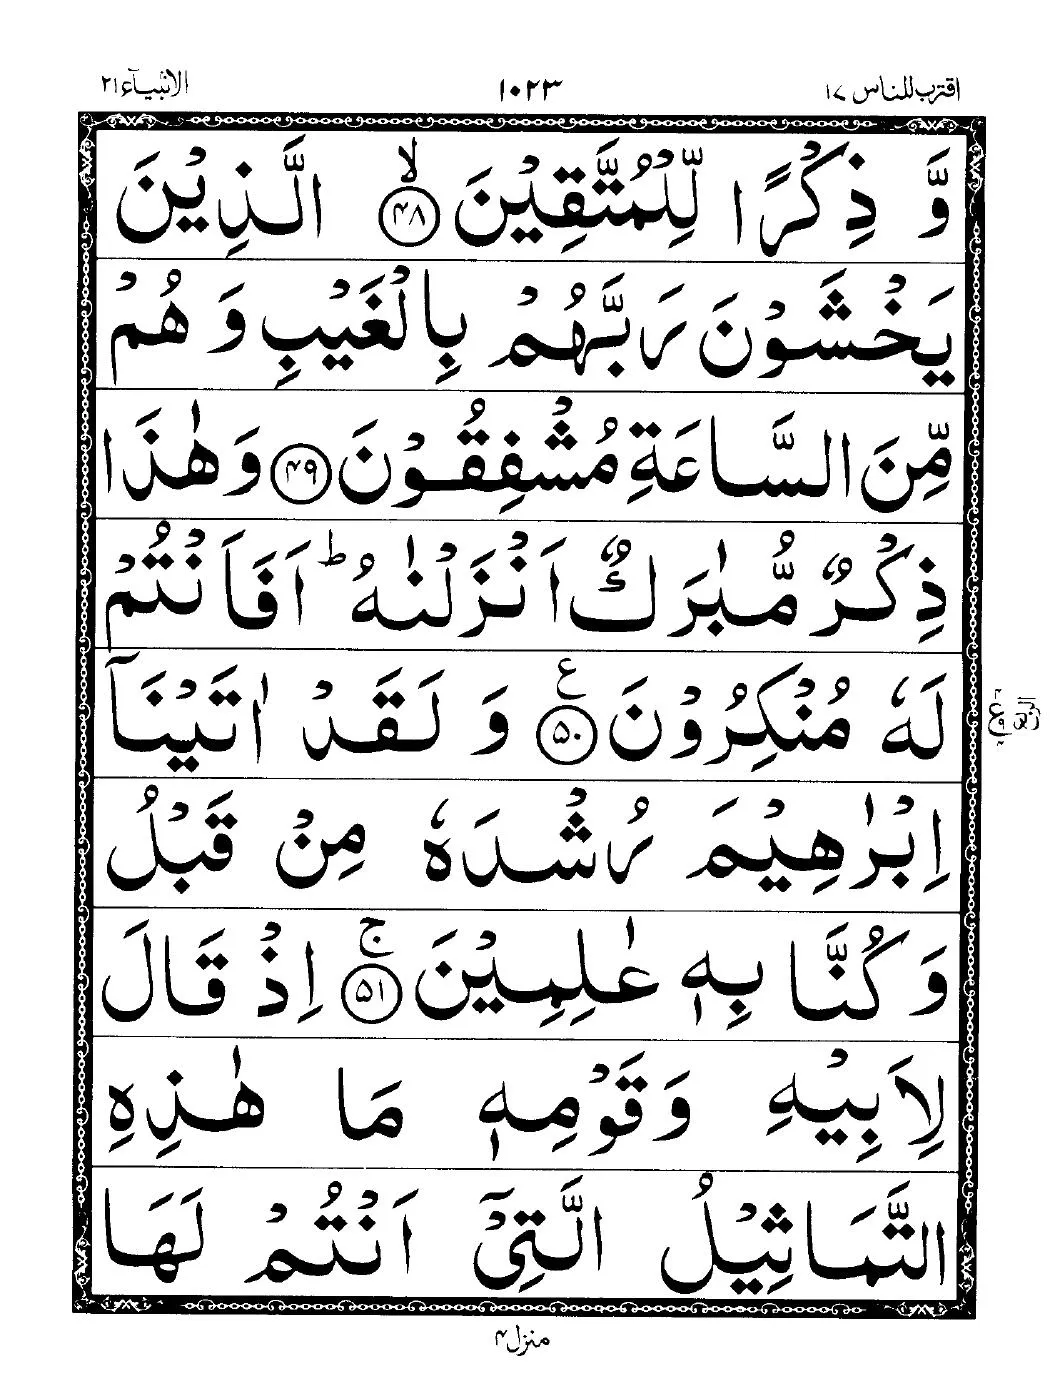 اقترب للناس ۱۷
۱۰۲۳
الانبیآء ۲۱
وَّ ذِكْرًا لِّلْمُتَّقِيْنَ ۙ﴿۴۸﴾ الَّذِيْنَ
يَخْشَوْنَ رَبَّهُمْ بِالْغَيْبِ وَ هُمْ
مِّنَ السَّاعَةِ مُشْفِقُوْنَ ﴿۴۹﴾ وَ هٰذَا
ذِكْرٌ مُّبٰرَكٌ اَنْزَلْنٰهُ ؕ اَفَاَنْتُمْ
لَهٗ مُنْكِرُوْنَ ﴿۵۰﴾ ع وَ لَقَدْ اٰتَيْنَاۤ
اِبْرٰهِيْمَ رُشْدَهٗ مِنْ قَبْلُ
وَ كُنَّا بِهٖ عٰلِمِيْنَ ۚ﴿۵۱﴾ اِذْ قَالَ
لِاَبِيْهِ وَ قَوْمِهٖ مَا هٰذِهِ
التَّمَاثِيْلُ الَّتِيْۤ اَنْتُمْ لَهَا
منزل ۴